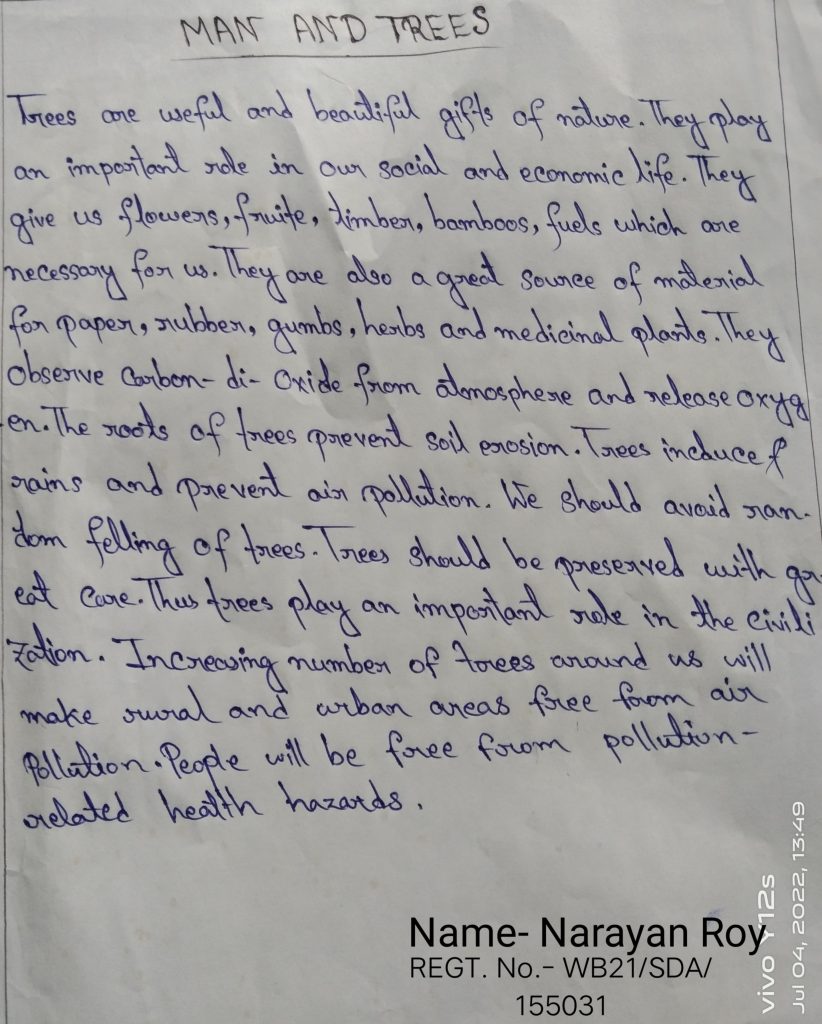 MAN AND TREES
Trees are useful and beautiful gifts of nature. They play
an important role in our social and economic life. They
give us flowers, fruite, timber, bamboos, fuels which are
necessary for us. They are also a great source of material
for paper, rubber, gumbs, herbs and medicinal plants. They
observe Carbon-di-Oxide from atmosphere and release oxyg
en. The roots of trees prevent soil erosion. Trees induce
rains and prevent air pollution. We should avoid ran-
dom felling of trees. Trees should be preserved with gr
eat care. Thus trees play an important role in the civili
zation. Increasing number of trees around us will
make rural and urban areas free from air
Pollution. People will be free from pollution-
related health hazards.
Name- Narayan Roy
REGT. No.- WB21/SDA/
155031
vivo Y12s
Jul 04, 2022, 13:49